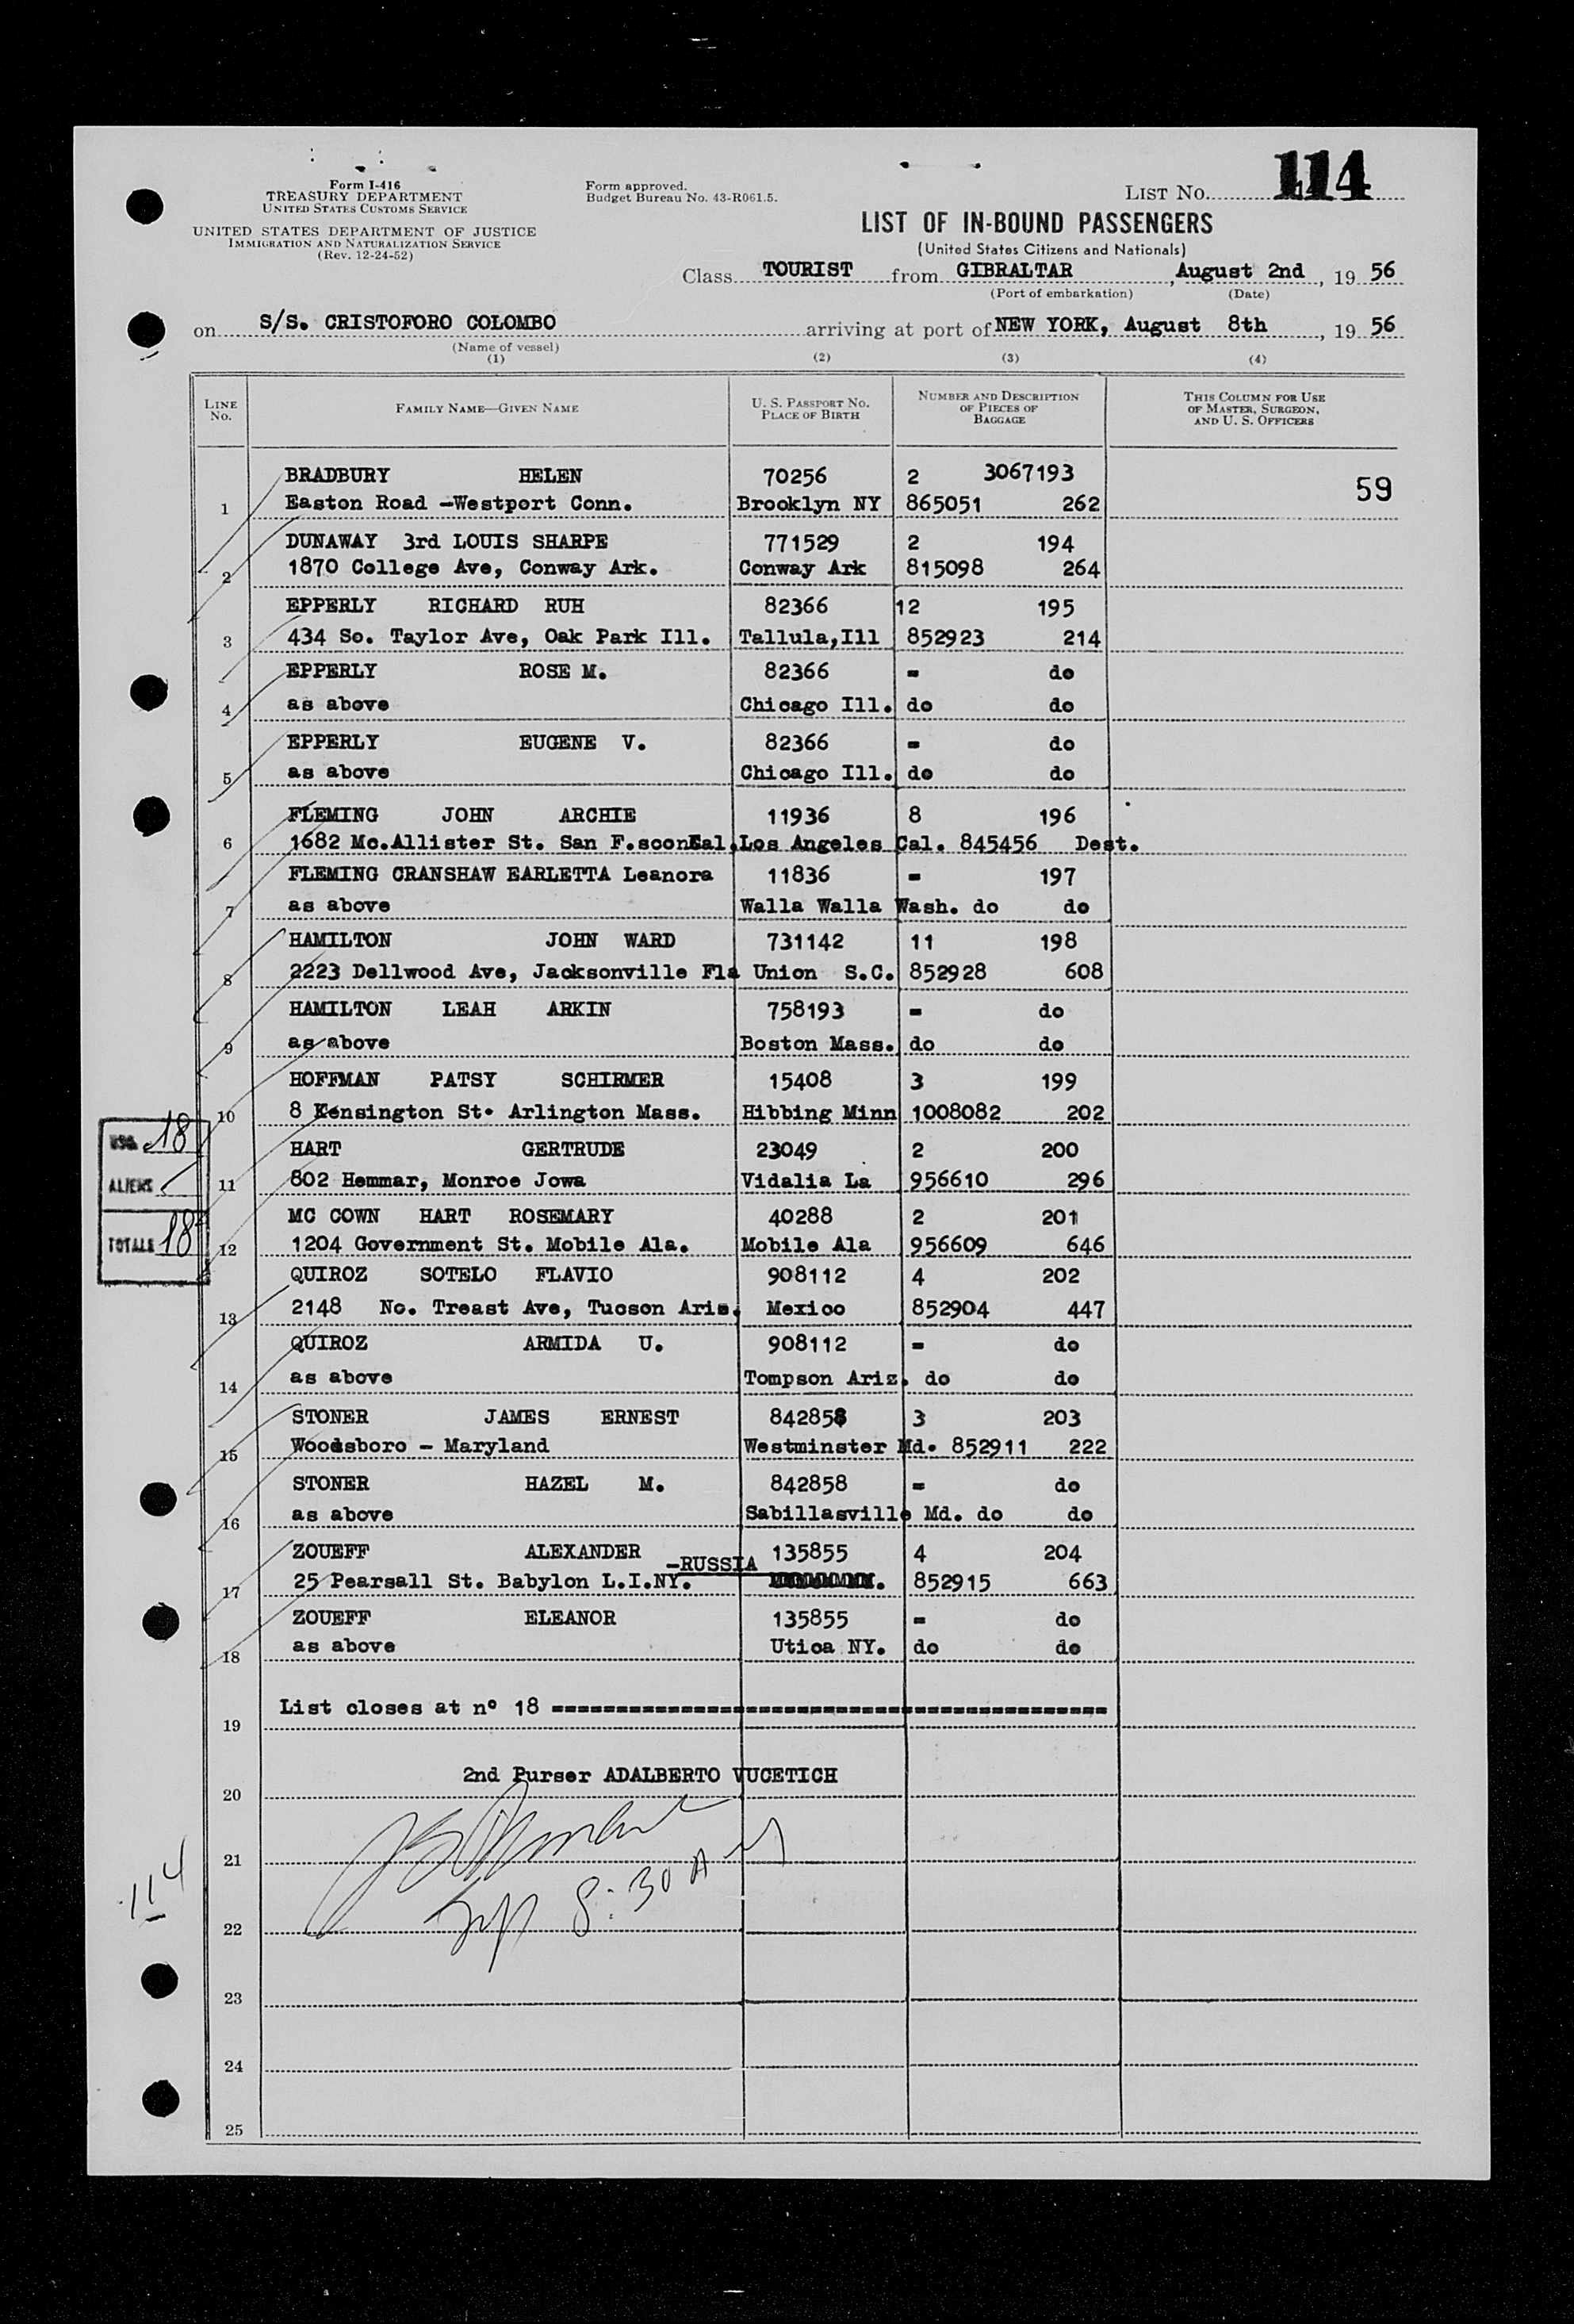 Form I-416
TREASURY DEPARTMENT
UNITED STATES CUSTOMS SERVICE
UNITED STATES DEPARTMENT OF JUSTICE
IMMIGRATION AND NATURALIZATION SERVICE
(Rev. 12-24-52)
Form approved.
Budget Bureau No. 43-R061.5.
LIST No. 114
LIST OF IN-BOUND PASSENGERS
(United States Citizens and Nationals)
Class TOURIST from GIBRALTAR, August 2nd, 19 56
(Port of embarkation) (Date)
on S/S. CRISTOFORO COLOMBO arriving at port of NEW YORK, August 8th, 19 56
(Name of vessel)
(1) (2) (3) (4)
LINE No. FAMILY NAME—GIVEN NAME U. S. PASSPORT NO. PLACE OF BIRTH NUMBER AND DESCRIPTION OF PIECES OF BAGGAGE THIS COLUMN FOR USE OF MASTER, SURGEON, AND U. S. OFFICERS
BRADBURY HELEN 70256 2 3067193 59
1 Easton Road -Westport Conn. Brooklyn NY 865051 262
DUNAWAY 3rd LOUIS SHARPE 771529 2 194
2 1870 College Ave, Conway Ark. Conway Ark 815098 264
EPPERLY RICHARD RUH 82366 12 195
3 434 So. Taylor Ave, Oak Park Ill. Tallula,Ill 852923 214
EPPERLY ROSE M. 82366 - do
4 as above Chicago Ill. do do
EPPERLY EUGENE V. 82366 - do
5 as above Chicago Ill. do do
FLEMING JOHN ARCHIE 11936 8 196
6 1682 Mc.Allister St. San F.sco Cal. Los Angeles Cal. 845456 Dest.
FLEMING CRANSHAW EARLETTA Leanora 11836 - 197
7 as above Walla Walla Wash. do do
HAMILTON JOHN WARD 731142 11 198
8 2223 Dellwood Ave, Jacksonville Fla Union S.C. 852928 608
HAMILTON LEAH ARKIN 758193 - do
9 as above Boston Mass. do do
HOFFMAN PATSY SCHIRMER 15408 3 199
10 8 Kensington St. Arlington Mass. Hibbing Minn 1008082 202
HART GERTRUDE 23049 2 200
11 802 Hemmar, Monroe Jowa Vidalia La 956610 296
MC COWN HART ROSEMARY 40288 2 201
12 1204 Government St. Mobile Ala. Mobile Ala 956609 646
QUIROZ SOTELO FLAVIO 908112 4 202
13 2148 No. Treast Ave, Tucson Aris. Mexico 852904 447
QUIROZ ARMIDA U. 908112 - do
14 as above Tompson Ariz. do do
STONER JAMES ERNEST 842858 3 203
15 Woodsboro - Maryland Westminster Md. 852911 222
STONER HAZEL M. 842858 - do
16 as above Sabillasville Md. do do
ZOUEFF ALEXANDER 135855 4 204
-RUSSIA
17 25 Pearsall St. Babylon L.I.NY. 852915 663
ZOUEFF ELEANOR 135855 - do
18 as above Utica NY. do do
USC. 18
ALIENS
TOTALS 18
19 List closes at nº 18
20 2nd Purser ADALBERTO VUCETICH
21
8:30 A M
22
114
23
24
25